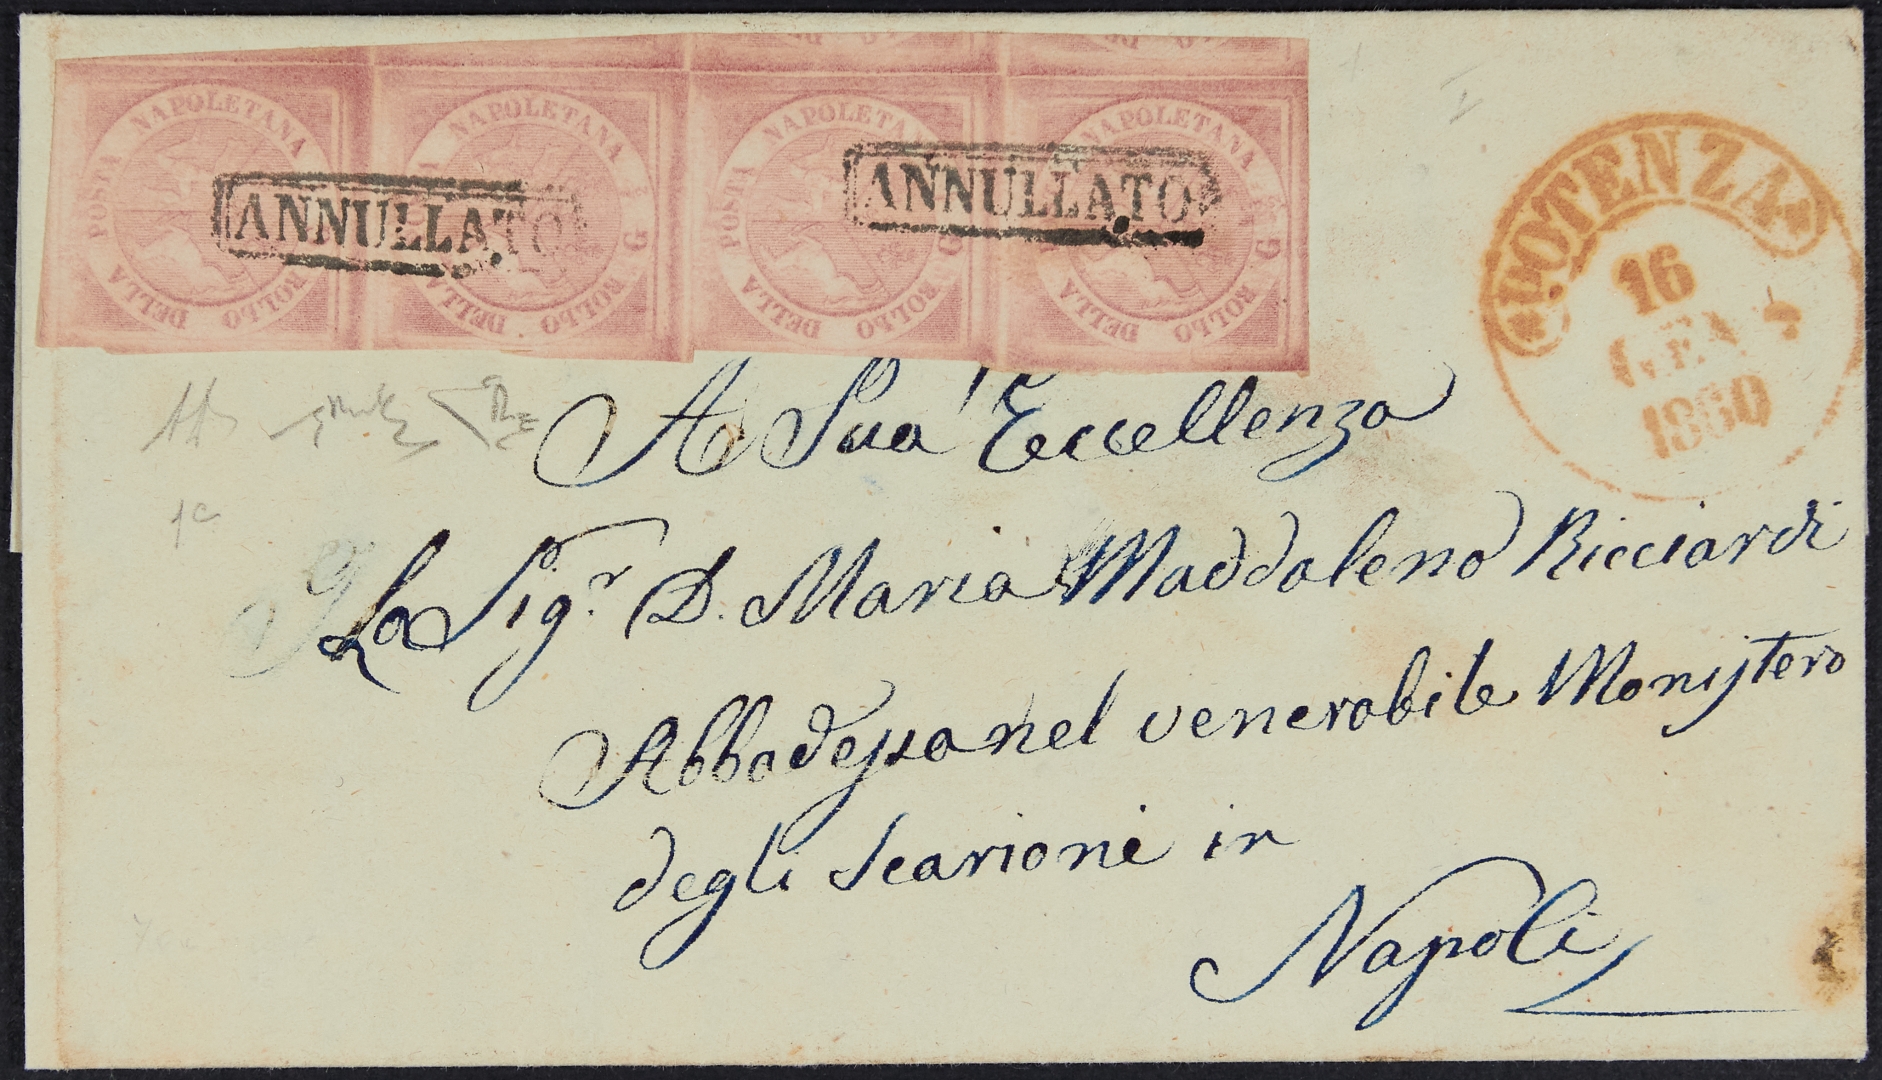 POSTA NAPOLETANA G 1 BOLLO DELLA
POSTA NAPOLETANA G BOLLO DELLA
POSTA NAPOLETANA G BOLLO DELLA
NAPOLETANA G BOLLO DELLA
ANNULLATO
ANNULLATO
POTENZA
16
GEN
1860
A Sua Eccellenza
La Sig.r D. Maria Maddalena Ricciardi
Abbadessa nel venerabile Monistero
degli Scarioni in
Napoli